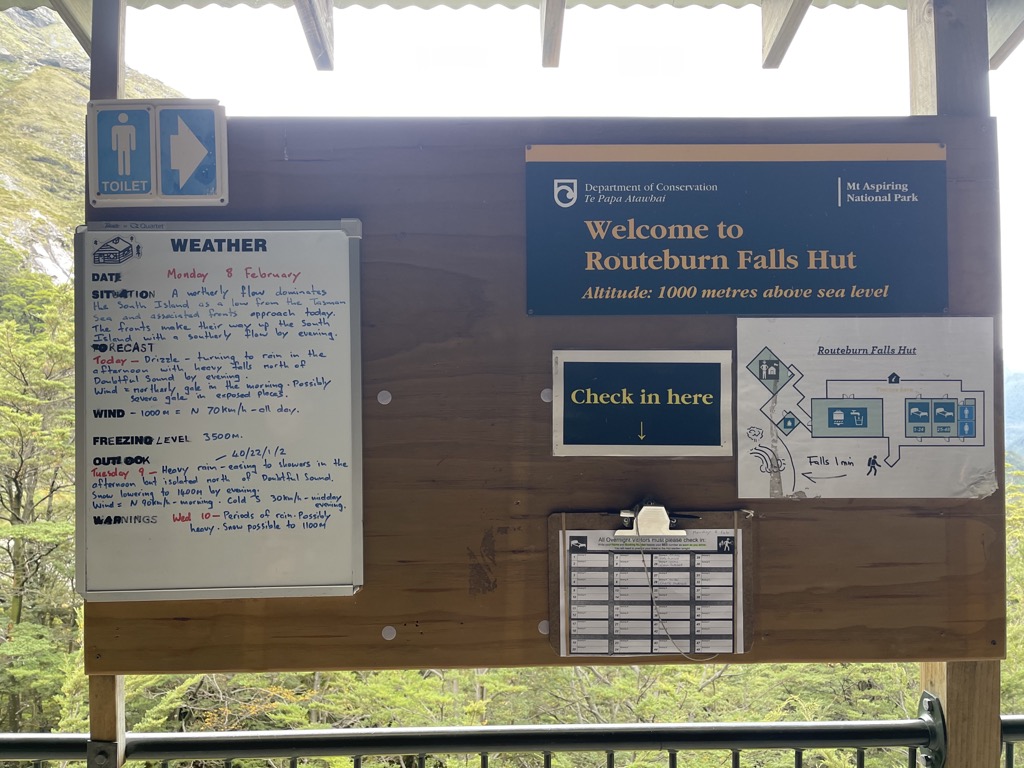 TOILET
WEATHER
DATE Monday 8 February
SITUATION A northerly flow dominates
the South Island as a low from the Tasman
Sea and associated fronts approach today.
The fronts make their way up the South
Island with a southerly flow by evening.
FORECAST
Today - Drizzle - turning to rain in the
afternoon with heavy falls north of
Doubtful Sound by evening.
Wind = northerly gale in the morning. Possibly
severe gale in exposed places.
WIND - 1000m = N 70km/h - all day.
FREEZING LEVEL 3500m.
OUTLOOK - 40/22/1/2
Tuesday 9 - Heavy rain - easing to showers in the
afternoon but isolated north of Doubtful Sound.
Snow lowering to 1400m by evening.
Wind = N 90km/h - morning. Cold S 30km/h - midday
evening.
WARNINGS Wed 10 - Periods of rain. Possibly
heavy. Snow possible to 1100m
Department of Conservation
Te Papa Atawhai
Mt Aspiring
National Park
Welcome to
Routeburn Falls Hut
Altitude: 1000 metres above sea level
Check in here
Routeburn Falls Hut
Falls 1 min
All Overnight Visitors must please check in: